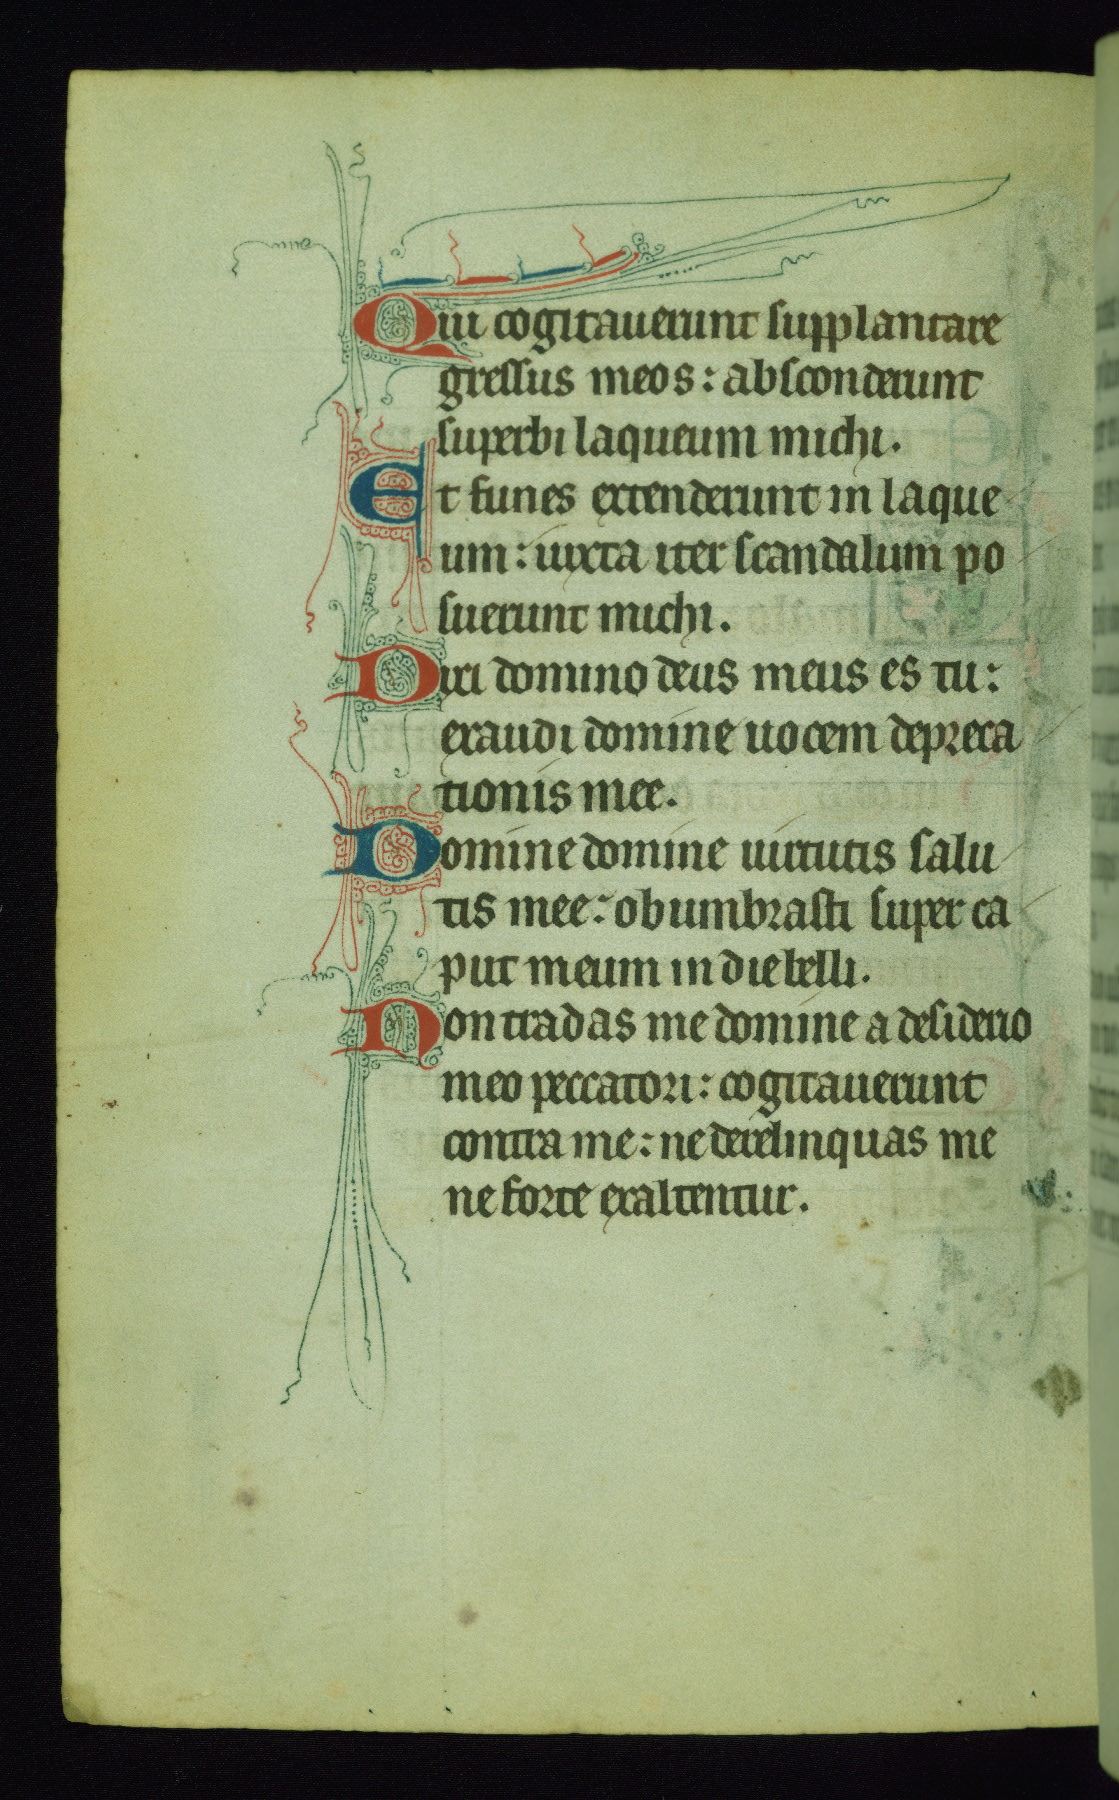 Qui cogitauerunt supplantare
gressus meos: absconderunt
superbi laqueum michi.
Et funes extenderunt in laque
um: iuxta iter scandalum po
suerunt michi.
Dixi domino deus meus es tu:
exaudi domine uocem depreca
tionis mee.
Domine domine uirtutis salu
tis mee: obumbrasti super ca
put meum in die belli.
Non tradas me domine a desiderio
meo peccatori: cogitauerunt
contra me: ne derelinquas me
ne forte exaltentur.